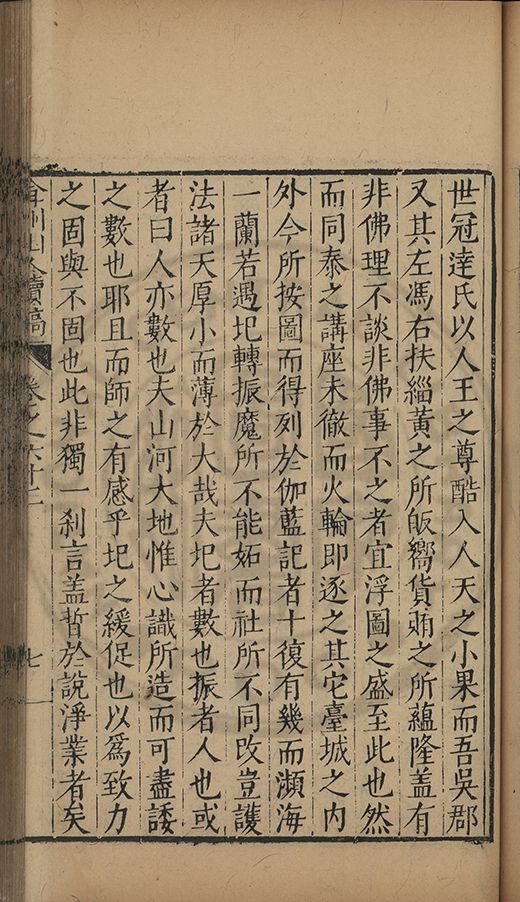 世冠達氏以人王之尊酷入人天之小果而吾吳郡
又其左馮右扶緇黃之所皈嚮貨賄之所蘊隆盖有
非佛理不談非佛事不之者宜浮圖之盛至此也然
而同泰之講座未徹而火輪即逐之其它臺城之内
外今所按圖而得列於伽藍記者十復有幾而瀕海
一蘭若遇圮轉振魔所不能妬而社所不同改豈護
法諸天厚小而薄於大哉夫圮者數也振者人也或
者曰人亦數也夫山河大地惟心識所造而可盡諉
之數也耶且而師之有感乎圮之緩促也以爲致力
之固與不固也此非獨一刹言盖晢於說淨業者矣
弇州山人續稿
卷之六十二
七